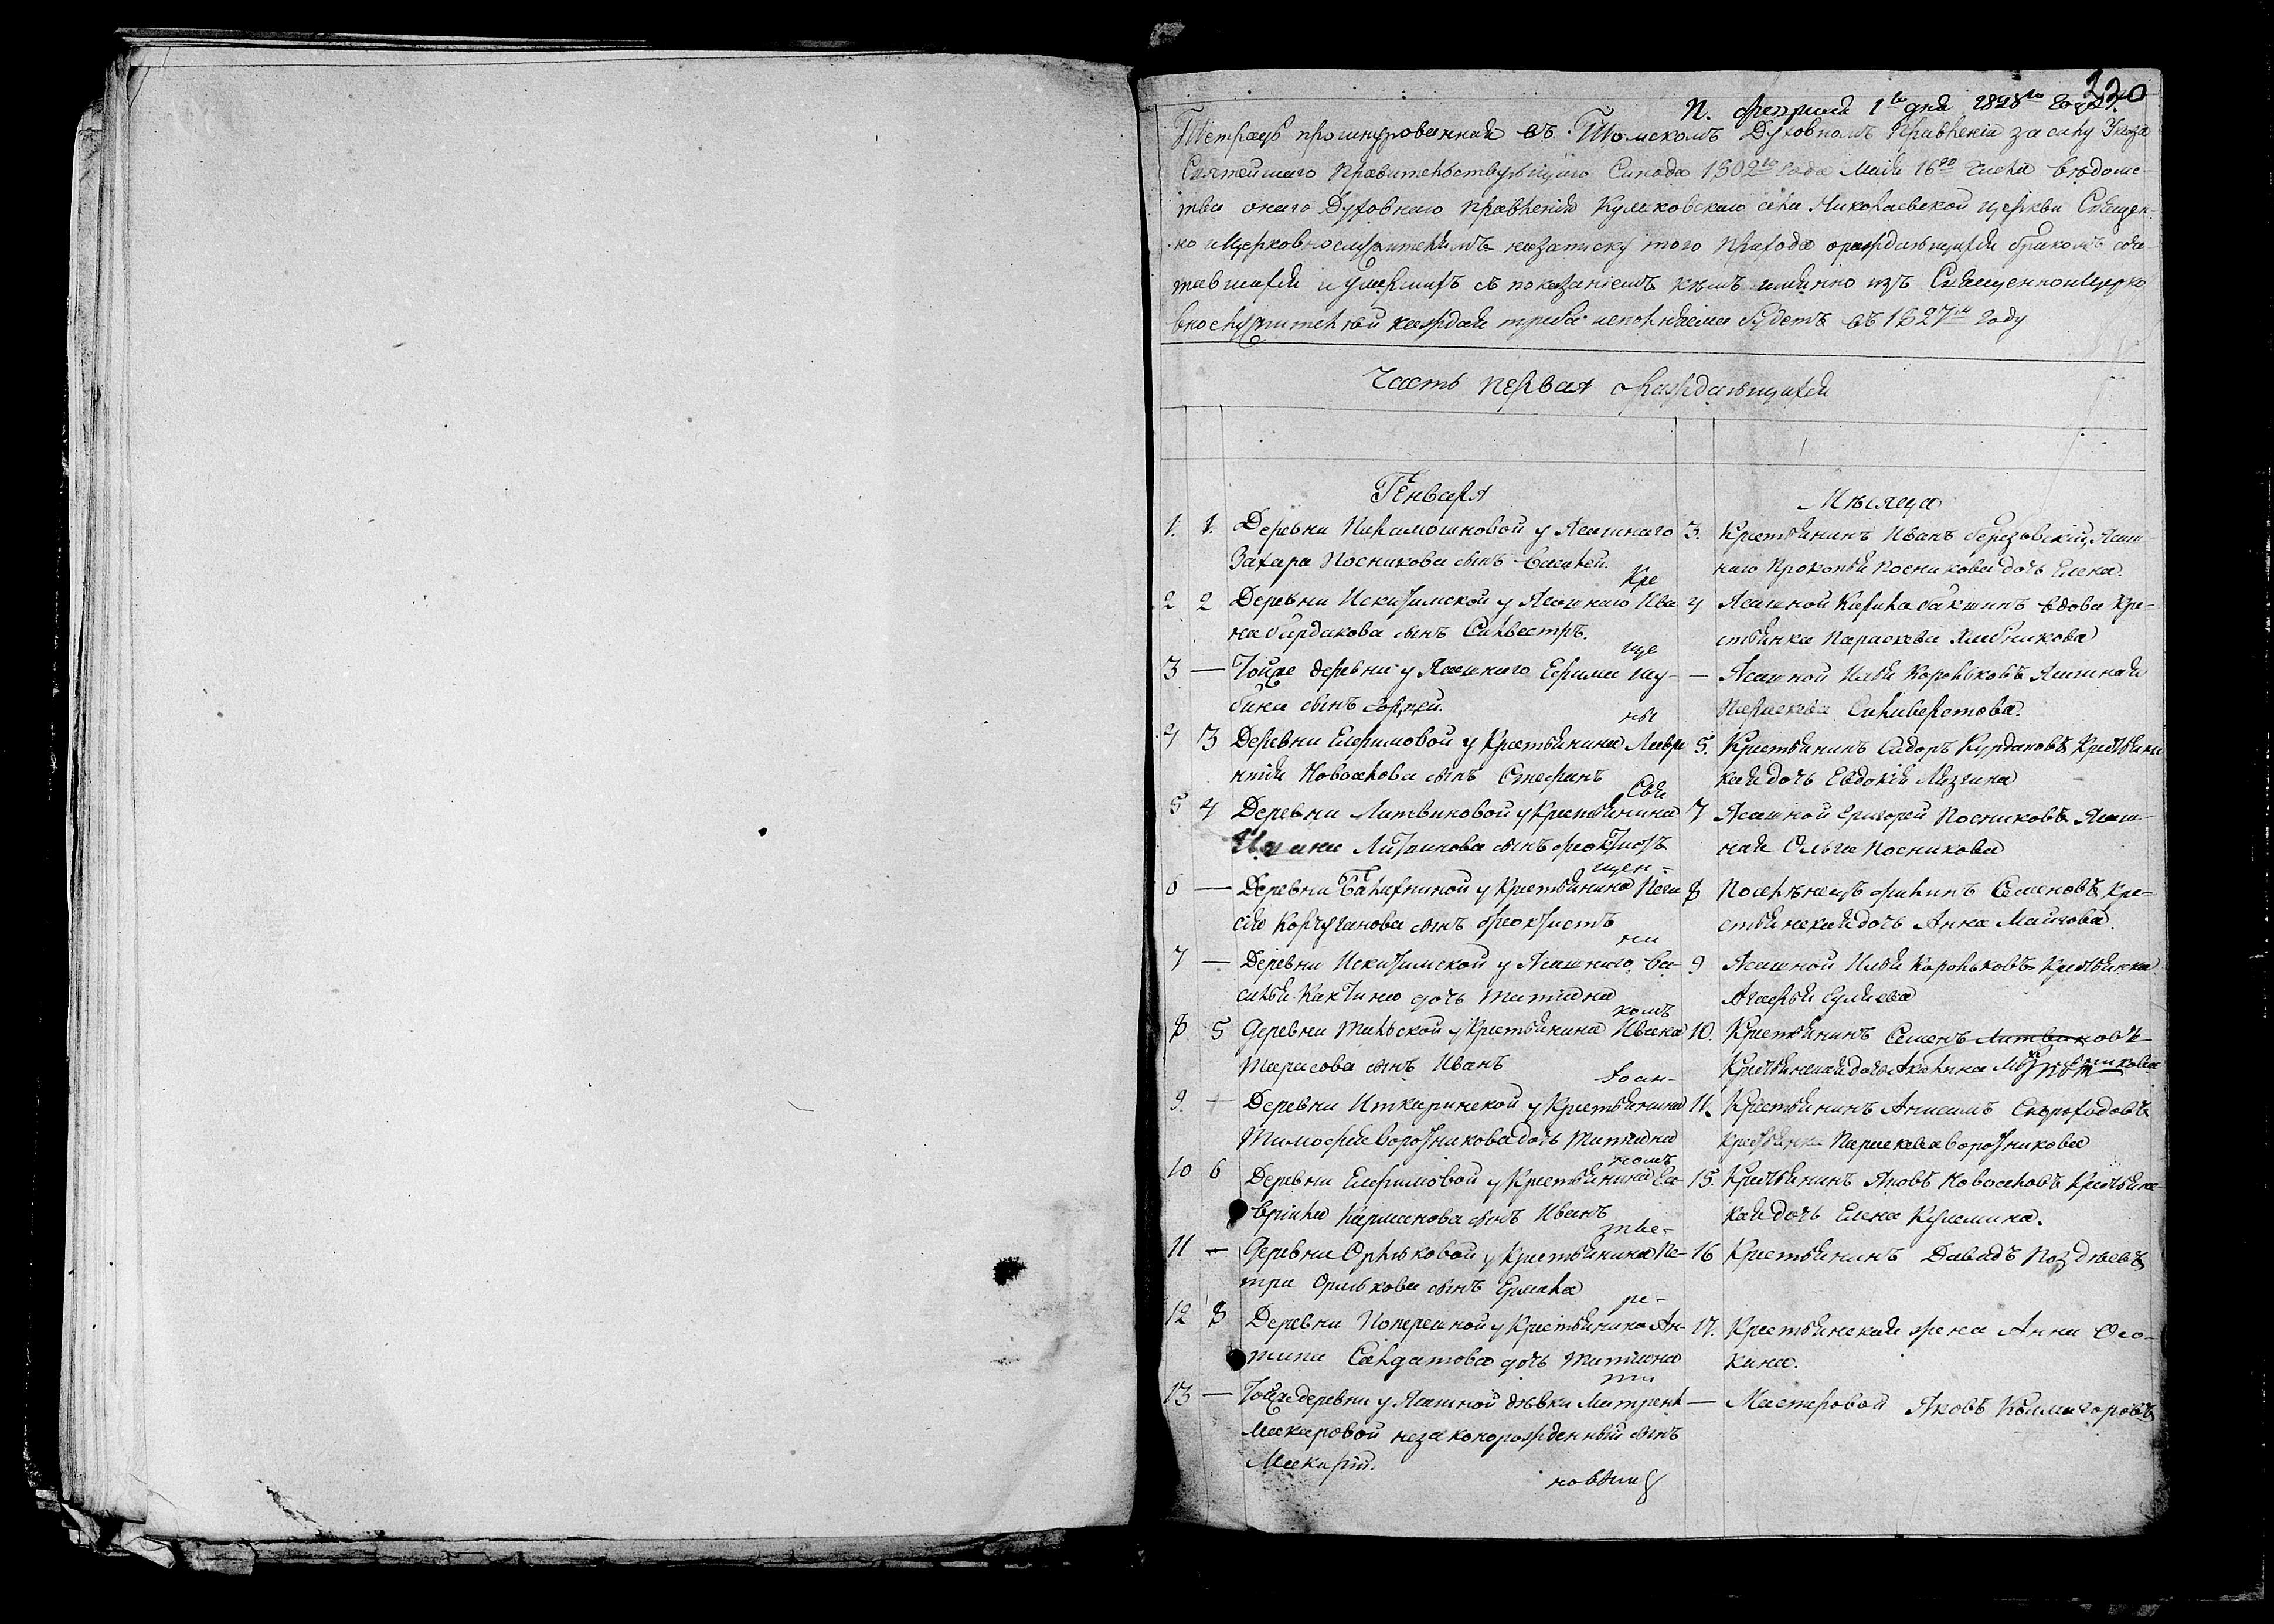 220
П. февраля 1го дня 1828го года
Тетрадь прошнурованная въ Томскомъ Духовномъ Правленіи за силу Указа
Святейшаго Правительствующаго Синода 1802го года Маія 16го числа вѣдомс-
тва онаго Духовнаго Правленія Кулаковскаго села Николаевской церкви Священ-
но и Церковнослужителямъ на записку того прихода о раждающихся бракомъ соче
тавшихся и умершихъ съ показаніемъ кѣмъ имянно изъ Священно и Церко
внослужителей каждая треба исполняема будетъ въ 1827м году
Часть первая о раждающихся
Генваря
Мѣсяца
1. 1. Деревни Парамошновой у Ясашнаго
Захара Посникова сынъ Василей.
3. Крестьянинъ Иванъ Березовскій, Ясаш-
наго Прокопья Посникова дочь Елена.
Кре
2 2 Деревни Искитимской у Ясашнаго Ива
на Бурдакова сынъ Силвестръ.
4 Ясашной Бакшинъ вдова Кре-
стьянка Параскева Хлебникова
ще
3 — Тойже деревни у Ясашнаго Ефима Шу-
бина сынъ Сергей.
— Ясашной Илья Корольковъ Ясашная
Параскева Силиверстова.
ны
4 3 Деревни Елфимовой у Крестьянина Лавре
нтія Новоселова сынъ Стефанъ
5. Крестьянинъ Сидоръ Курдаковъ Крестьянс
кая дочь Евдокія Мязгина
Свя
5 4 Деревни Литвиновой у Крестьянина
Литвинова сынъ Феоктистъ
7 Ясашной Григорей Посниковъ Ясаш-
ная Ольга Посникова
щен-
6 — Деревни у Крестьянина
Корчуганова сынъ Феоктистъ
8 Поселенецъ Филипъ Семеновъ Кре-
стьянская дочь Анна
ни
7 — Деревни Искитимской у Ясашнаго Ва-
силья дочь Татиана
9 Ясашной Илья Корольковъ Крестьянка
Агафья
комъ
8 5 Деревни Тальской у Крестьянина Ивана
Тарасова сынъ Иванъ
10. Крестьянинъ Семенъ Литвиновъ
Крестьянская дочь Акилина
Іоан-
9. — Деревни Иткаринской у Крестьянина
Тимофея Воротникова дочь Татиана
11. Крестьянинъ Анисимъ Скороходовъ
Крестьянка Параскева Воротникова
номъ
10 6 Деревни Елфимовой у Крестьянина Га-
вріила Карманова сынъ Иванъ
15. Крестьянинъ Яковъ Новоселовъ Крестьянс
кая дочь Елена Кулемина.
зтве-
11 — Деревни Орлюковой у Крестьянина Пе-
тра Орлюкова сынъ Ермила
16 Крестьянинъ Давидъ Поздѣевъ
ре-
12 8 Деревни Поперешной у Крестьянина Ан-
типа Салдатова дочь Татиана
17. Крестьянская жена Анна Осо-
кина.
ти
13 — Тойже деревни у Ясашной дѣвки Матрены
Макаровой незаконорожденный сынъ
Макарій.
— Мастеровой Яковъ Калмагоровъ